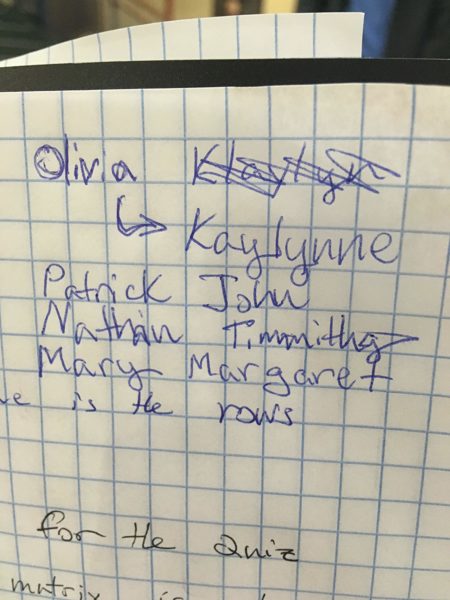 Olivia
→ Kaylynne
Patrick John
Nathan Timmithy
Mary Margaret
is the rows
for the Quiz
matrix is